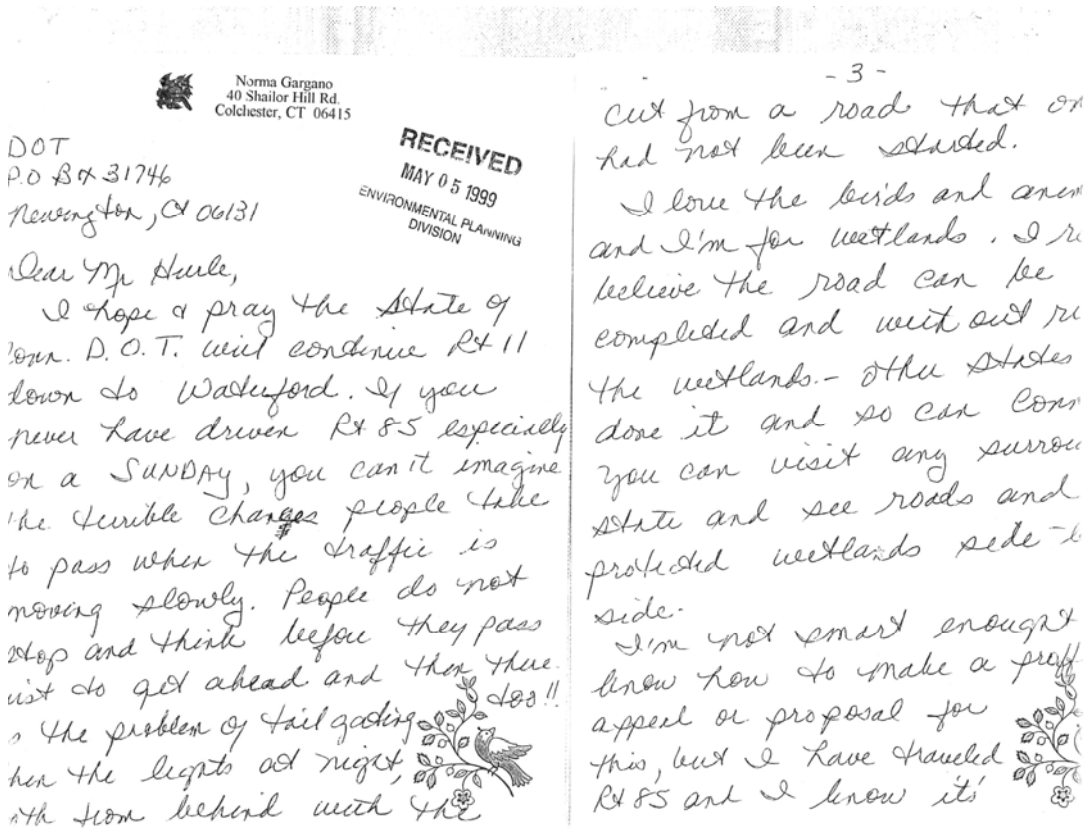 Norma Gargano
40 Shailor Hill Rd.
Colchester, CT 06415
RECEIVED
MAY 05 1999
ENVIRONMENTAL PLANNING
DIVISION
DOT
P.O Box 31746
Newington, Ct 06131
Dear Mr Hurle,
I hope & pray the State of
Conn. D.O.T. will continue Rt 11
down to Waterford. If you
never have driven Rt 85 especially
on a SUNDAY, you can't imagine
the terrible changes people take
to pass when the traffic is
moving slowly. People do not
stop and think before they pass
just to get ahead and then there
is the problem of tailgating too!!
the lights at night,
from behind with the
- 3 -
cut from a road that on
had not been started.
I love the birds and anim
and I'm for wetlands. I re
believe the road can be
completed and with out ru
the wetlands. - Other States
done it and so can Conn
You can visit any surrou
state and see roads and
protected wetlands side-b
side.
I'm not smart enought
know how to make a proff
appeal or proposal for
this, but I have traveled
Rt 85 and I know it's